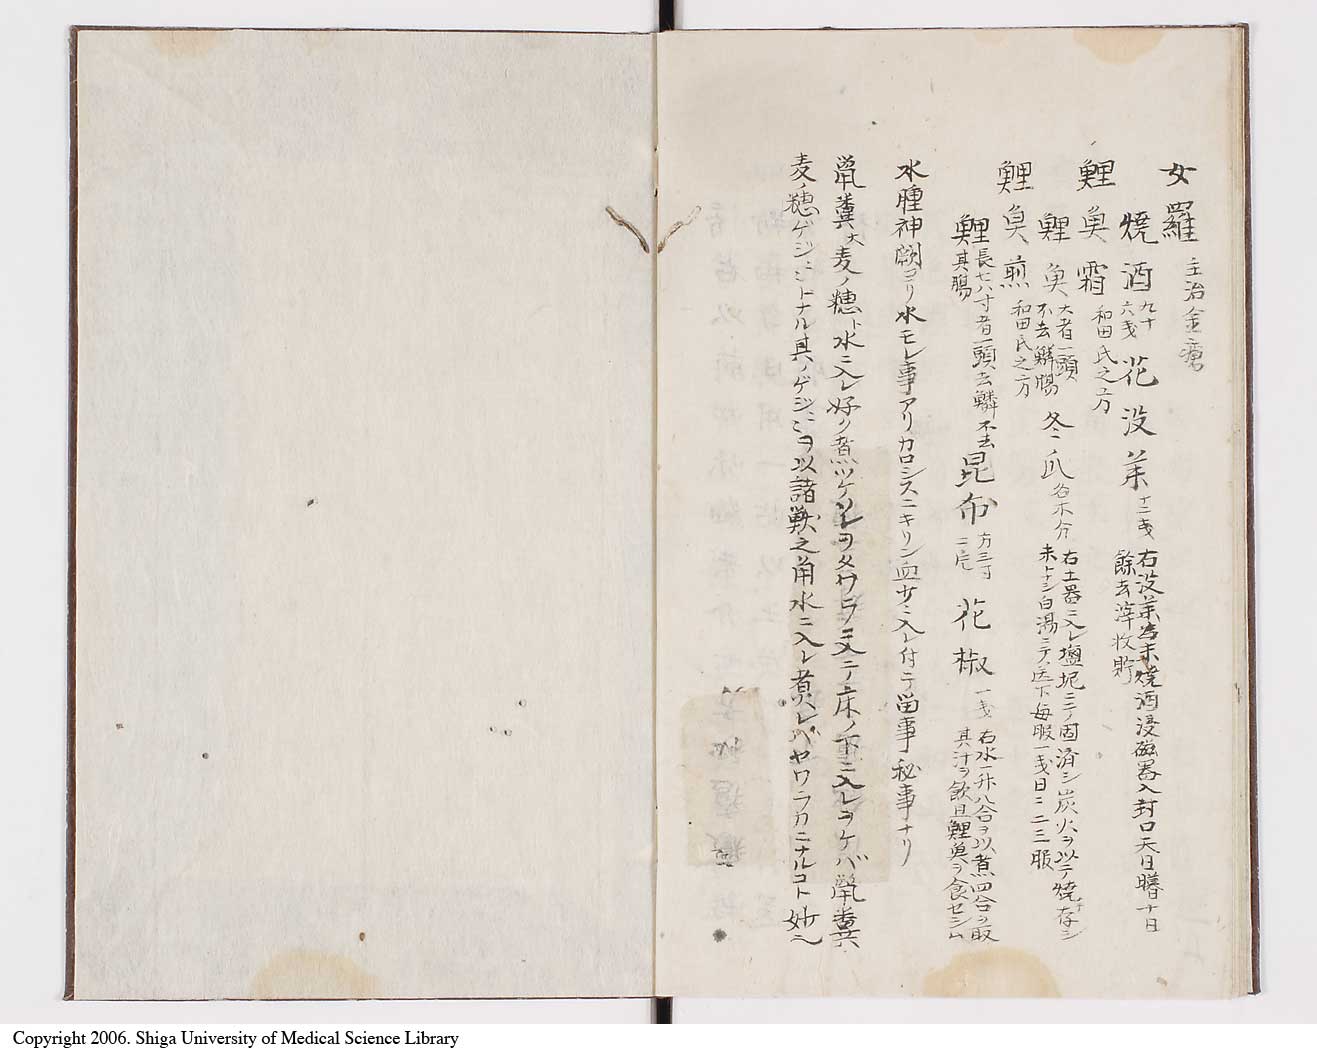 女羅 主治金瘡
燒酒 九十六戔 花没茱 十二戔 右没茱為末燒酒浸磁器入封口天日曝十日
餘去滓收貯
鯉魚霜 和田氏之方
鯉魚 大者一頭不去鱗腸 冬瓜 各木介 右土器ニ入レ塩坭ニテ固済シ炭火ヲ以テ燒存シ
末トナシ白湯ニテ送下毎服一戔日ニ二三服
鯉魚煎 和田氏之方
鯉 長七八寸者一頭去鱗不去其腸 昆布 方三寸二 花椒 一戔 右水一升八合ヲ以煮四合ヲ取
其汁ヲ飲且鯉魚ヲ食セシム
水腫神闕ヨリ水モレ事アリカロシスニキリン血サシ入レ付テ留事秘事ナリ
鼠糞大麦ノ穂ト水ニ入レ好ク煮ツケソレヲタワラノ入テ床ノ下ニ入レヲケバ鼠糞
麦ノ穂ゲジゞトナル其ノゲジゞヲ以諸獣之角水ニ入レ煮ルレバヤワラカニナルコト妙也
Copyright 2006. Shiga University of Medical Science Library